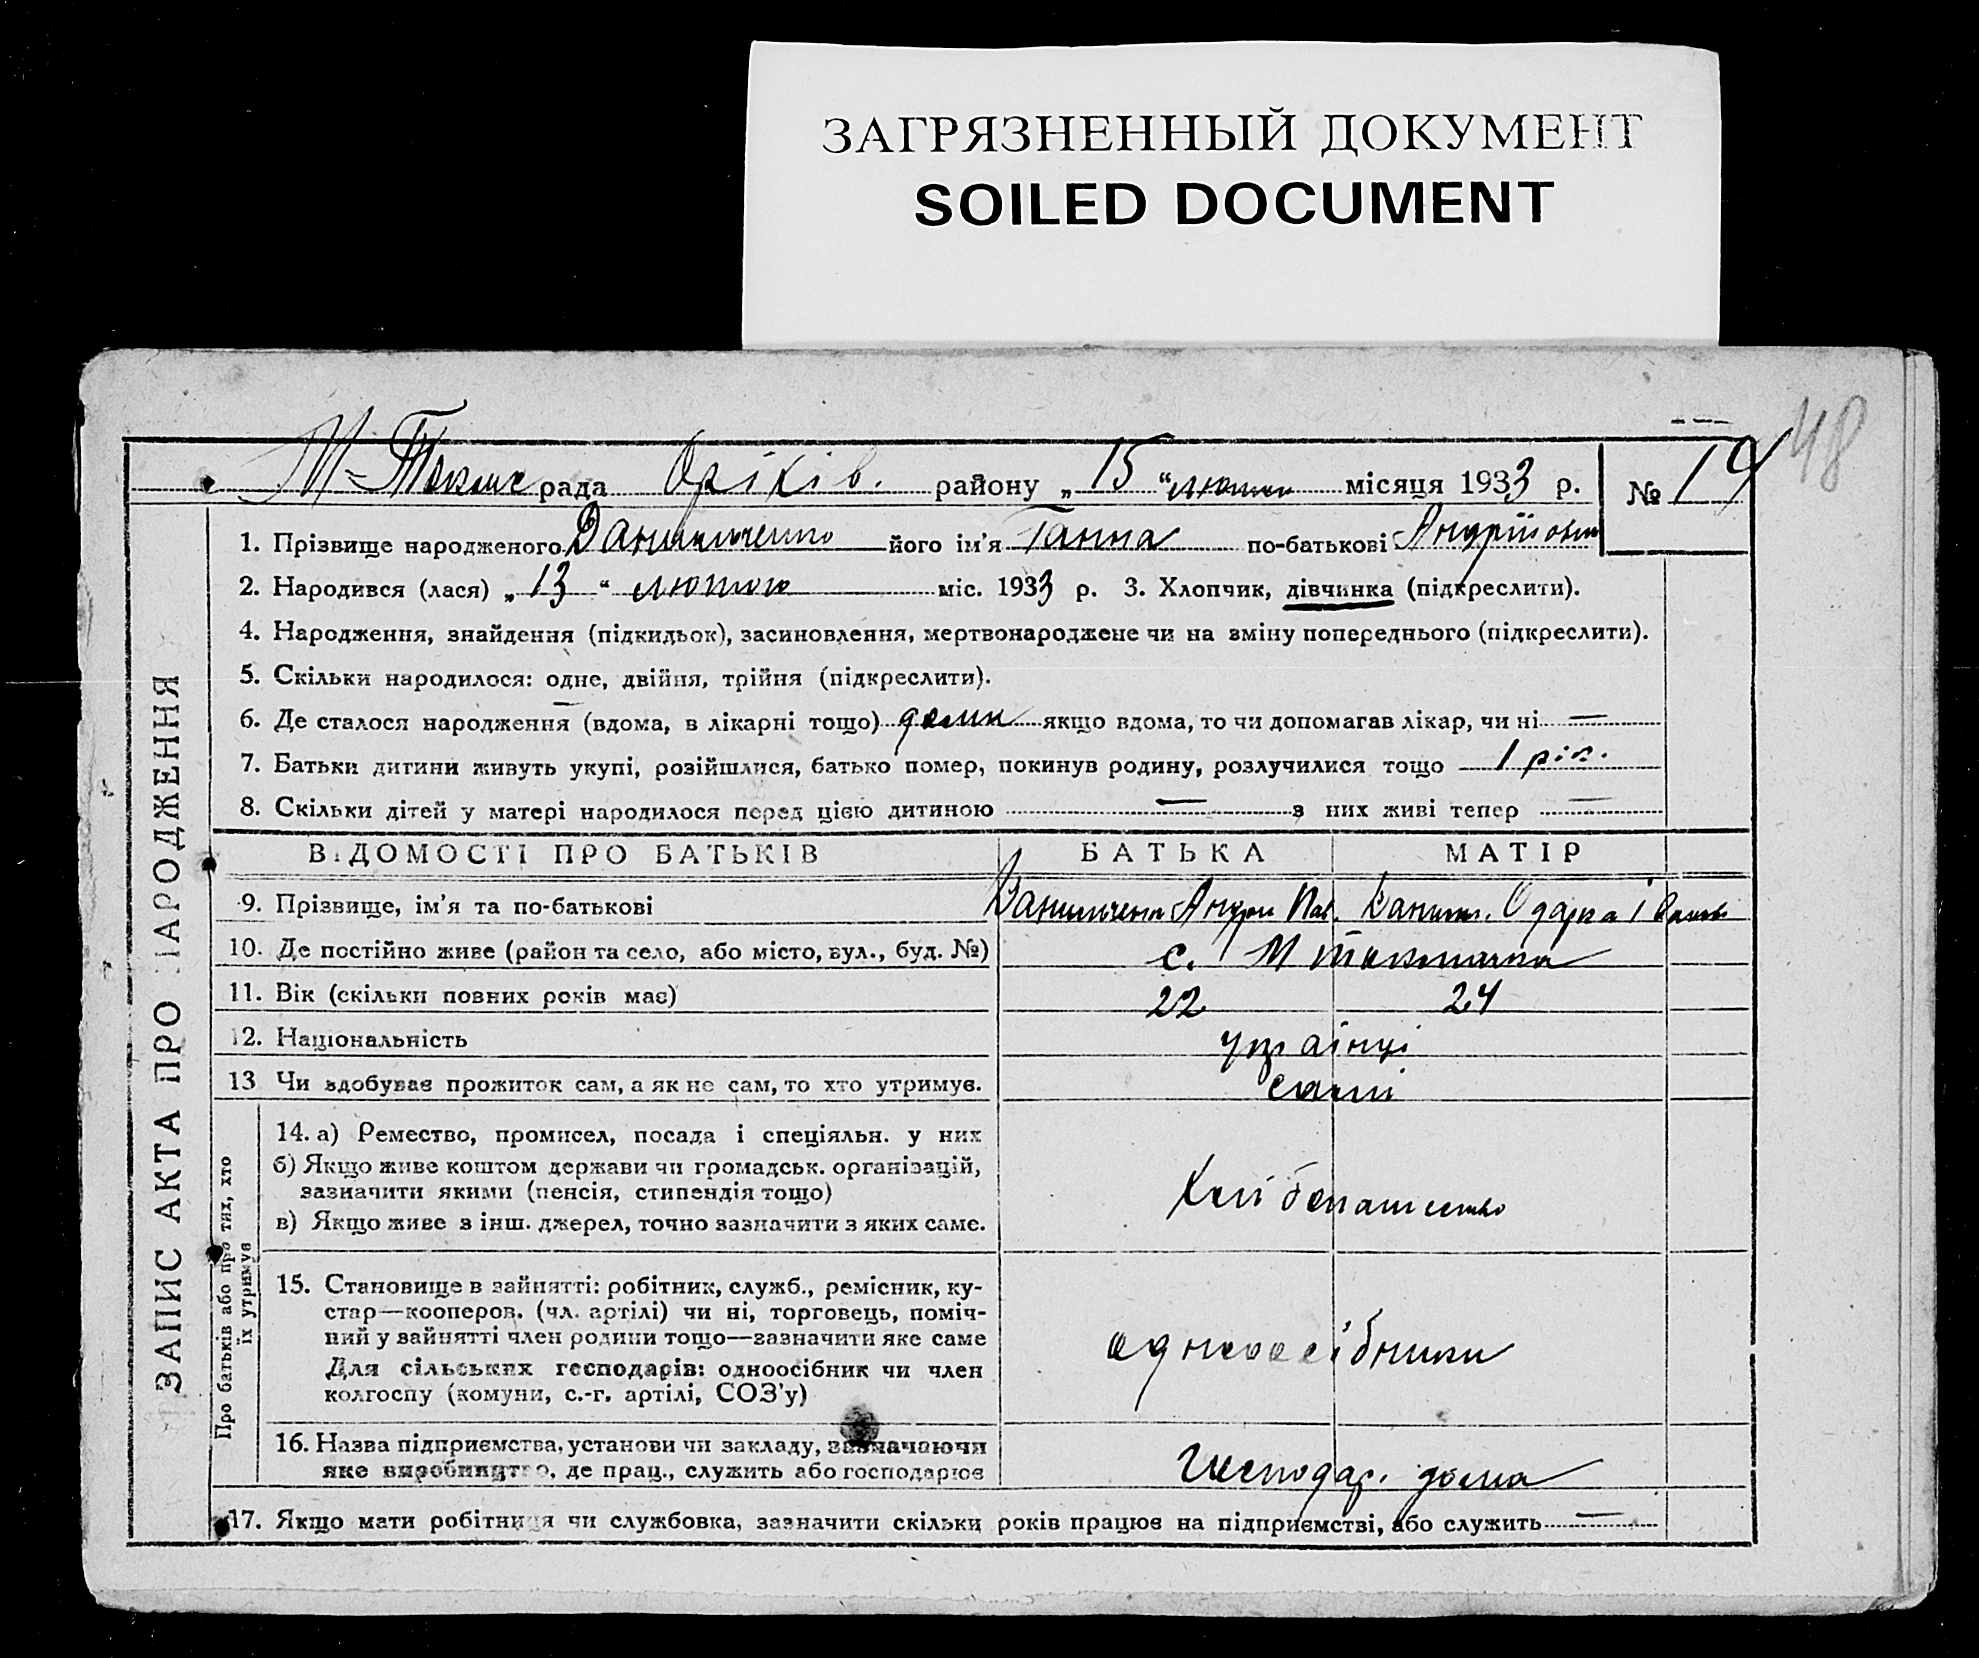 ЗАГРЯЗНЕННЫЙ ДОКУМЕНТ
SOILED DOCUMENT
48
М-Токмак рада Оріхів. району „15“ лютого місяця 1933 р. № 19
1. Прізвище народженого Данильченко його ім'я Ганна по-батькові Андріївна
2. Народився (лася) „13“ лютого міс. 1933 р. 3. Хлопчик, дівчинка (підкреслити).
4. Народження, знайдення (підкидьок), засиновлення, мертвонароджене чи на зміну попереднього (підкреслити).
5. Скільки народилося: одне, двійня, трійня (підкреслити).
6. Де сталося народження (вдома, в лікарні тощо) дома якщо вдома, то чи допомагав лікар, чи ні —
7. Батьки дитини живуть укупі, розійшлися, батько помер, покинув родину, розлучилися тощо 1 рік.
8. Скільки дітей у матері народилося перед цією дитиною — з них живі тепер —
ВІДОМОСТІ ПРО БАТЬКІВ БАТЬКА МАТІР
9. Прізвище, ім'я та по-батькові Данильченко Андрій Пав. Данильч. Одарка Іванів
10. Де постійно живе (район та село, або місто, вул., буд. №) с. М Токмачка
11. Вік (скільки повних років має) 22 24
12. Національність українці
13 Чи здобуває прожиток сам, а як не сам, то хто утримує. самі
14. а) Ремество, промисел, посада і спеціяльн. у них
б) Якщо живе коштом держави чи громадськ. організацій,
зазначити якими (пенсія, стипендія тощо)
в) Якщо живе з інш. джерел, точно зазначити з яких саме.
Хлібопашество
15. Становище в зайнятті: робітник, служб., ремісник, ку-
стар—кооперов. (чл. артілі) чи ні, торговець, поміч-
ний у зайнятті член родини тощо—зазначити яке саме
Для сільських господарів: одноосібник чи член
колгоспу (комуни, с.-г. артілі, СОЗ'у)
одноосібники
16. Назва підприємства, установи чи закладу, зазначаючи
яке виробництво, де прац., служить або господарює
господар. дома
17. Якщо мати робітниця чи службовка, зазначити скільки років працює на підприємстві, або служить —
ЗАПИС АКТА ПРО НАРОДЖЕННЯ
Про батьків або про тих, хто
їх утримує